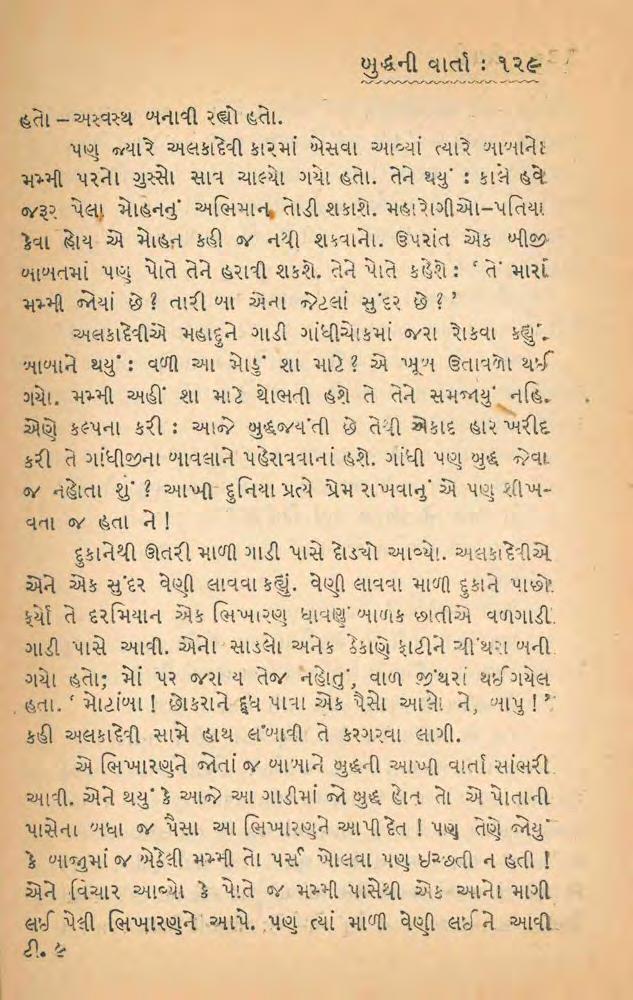 બુદ્ધની વાર્તા : ૧૨૯
હતો – અસ્વસ્થ બનાવી રહ્યો હતો.
પણ જ્યારે અલકાદેવી કારમાં બેસવા આવ્યાં ત્યારે બાબાનો
મમ્મી પરનો ગુસ્સો સાવ ચાલ્યો ગયો હતો. તેને થયું : કાલે હવે
જરૂર પેલા મોહનનું અભિમાન તોડી શકાશે. મહારોગીઓ–પતિયા
કેવા હોય એ મોહન કહી જ નથી શકવાનો. ઉપરાંત એક બીજી
બાબતમાં પણ પોતે તેને હરાવી શકશે. તેને પોતે કહેશે : ‘ તેં મારાં
મમ્મી જોયાં છે ? તારી બા એના જેટલાં સુંદર છે ? ’
અલકાદેવીએ મહાદુને ગાડી ગાંધીચોકમાં જરા રોકવા કહ્યું.
બાબાને થયું : વળી આ મોડું શા માટે ? એ ખૂબ ઉતાવળો થઈ
ગયો. મમ્મી અહીં શા માટે થોભતી હશે તે તેને સમજાયું નહિ.
એણે કલ્પના કરી : આજે બુદ્ધજયંતી છે તેથી એકાદ હાર ખરીદ
કરી તે ગાંધીજીના બાવલાને પહેરાવવાનાં હશે. ગાંધી પણ બુદ્ધ જેવા
જ નહોતા શું ? આખી દુનિયા પ્રત્યે પ્રેમ રાખવાનું એ પણ શીખ-
વતા જ હતા ને !
દુકાનેથી ઊતરી માળી ગાડી પાસે દોડ્યો આવ્યો. અલકાદેવીએ
એને એક સુંદર વેણી લાવવા કહ્યું. વેણી લાવવા માળી દુકાને પાછો
ફર્યો તે દરમિયાન એક ભિખારણ ધાવણું બાળક છાતીએ વળગાડી
ગાડી પાસે આવી. એનો સાડલો અનેક ઠેકાણે ફાટીને ચીંથરા બની
ગયો હતો; મોં પર જરા ય તેજ નહોતું, વાળ જીંથરાં થઈ ગયેલ
હતા. ‘ મોટાંબા ! છોકરાને દૂધ પાવા એક પૈસો આલો ને, બાપુ ! ’
કહી અલકાદેવી સામે હાથ લંબાવી તે કરગરવા લાગી.
એ ભિખારણને જોતાં જ બાબાને બુદ્ધની આખી વાર્તા સાંભરી
આવી. એને થયું કે આજે આ ગાડીમાં જો બુદ્ધ હોત તો એ પોતાની
પાસેના બધા જ પૈસા આ ભિખારણને આપી દેત ! પણ તેણે જોયું
કે બાજુમાં જ બેઠેલી મમ્મી તો પર્સ ખોલવા પણ ઇચ્છતી ન હતી !
એને વિચાર આવ્યો કે પોતે જ મમ્મી પાસેથી એક આનો માગી
લઈ પેલી ભિખારણને આપે. પણ ત્યાં માળી વેણી લઈ ને આવી
ટી. ૯